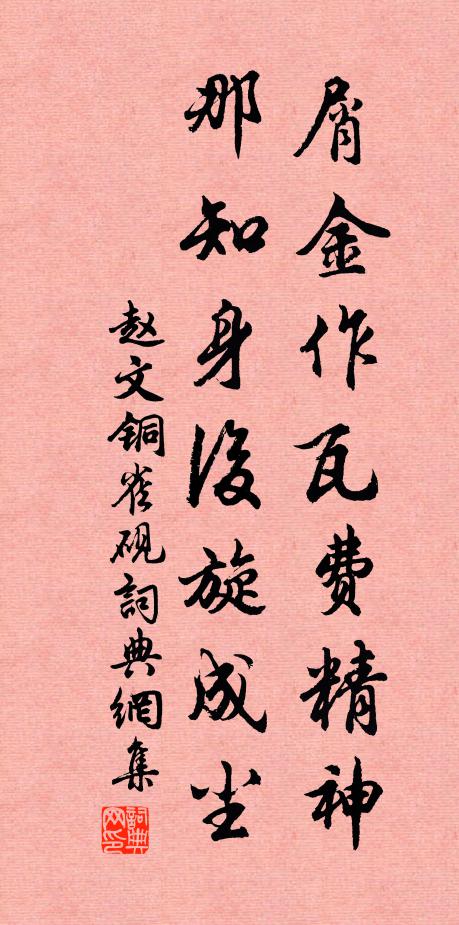 屑金作瓦费精神
那知身後旋成尘
赵文铜雀砚詞典網集
詞典网印